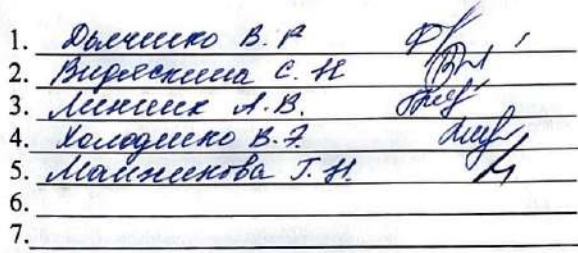 1. Дьяченко В. Р
2. Видяскина С. Н
3. Линник А. В.
4. Холоденко В. Э.
5. Манженкова Т. Н.
6.
7.